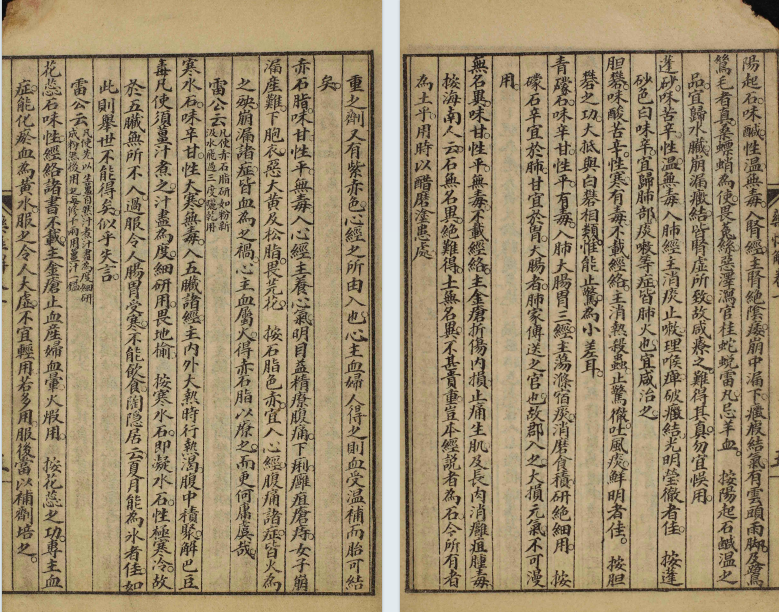 陽起石味鹹性溫無毒入腎經主腎絕陰痿崩中漏下癥瘕結氣有雲頭雨脚及鷺
鷥毛者真桑螵蛸為使畏菟絲惡澤瀉官桂蛇蛻雷丸忌羊血 按陽起石鹹溫之
品宜歸水臟崩漏癥結皆腎虛所致故咸療之難得其真勿宜悞用
蓬砂味苦辛性溫無毒入肺經主消痰止嗽理喉痺破癥結光明瑩徹者佳 按蓬
砂色白味辛宜歸肺部痰嗽等症皆肺火也宜咸治之
胆礬味酸苦辛性寒有毒不載經絡主消熱殺蟲止驚癇吐風痰鮮明者佳 按胆
礬之功大抵與白礬相類惟能止驚為小差耳
青礞石味辛甘性平有毒入肺大腸胃三經主蕩滌宿痰消磨食積研絕細用 按
礞石辛宜於肺甘宜於胃大腸者肺家傳送之官也故郡入之大損元氣不可漫
用
無名異味甘性平無毒不載經絡主金瘡折傷內損止痛生肌及長肉消癰疽腫毒
按海南人云石無名異絕難得土無名異不甚貴重豈本經說者為石今所有者
為土乎用時以醋磨塗患處
重之劑又有紫赤色心經之所由入也心主血婦人得之則血受溫補而胎可結
矣
赤石脂味甘性平無毒入心經主養心氣明目益精療腹痛下痢癰疽瘡痔女子崩
漏產難下胞衣惡大黃及松脂畏芫花 按石脂色赤宜入心經腹痛諸症皆火為
之殃崩漏諸症皆血為之禍心主血屬火得赤石脂以療之而更何庸虞哉
雷公云凡使赤石脂研如粉新汲水飛過三度曬乾用
寒水石味辛甘性大寒無毒入五臟諸經主內外大熱時行熱渴腹中積聚解巴豆
毒凡使須薑汁煮之汁盡為度細研用畏地榆 按寒水石即凝水石性極寒冷故
於五臟無所不入過服令人腸胃受寒不能飲食陶隱居云夏月能為氷者佳如
此則舉世不能得矣似乎失言
雷公云凡使先以生薑自然汁煮汁盡為度細研成粉然後用之每修十兩用薑汁一鎰
花蕊石味性經絡諸書不載主金瘡止血產婦血暈火煅用 按花蕊之功專主血
症能化瘀血為黃水服之令人大虛不宜輕用若多用服後當以補劑培之